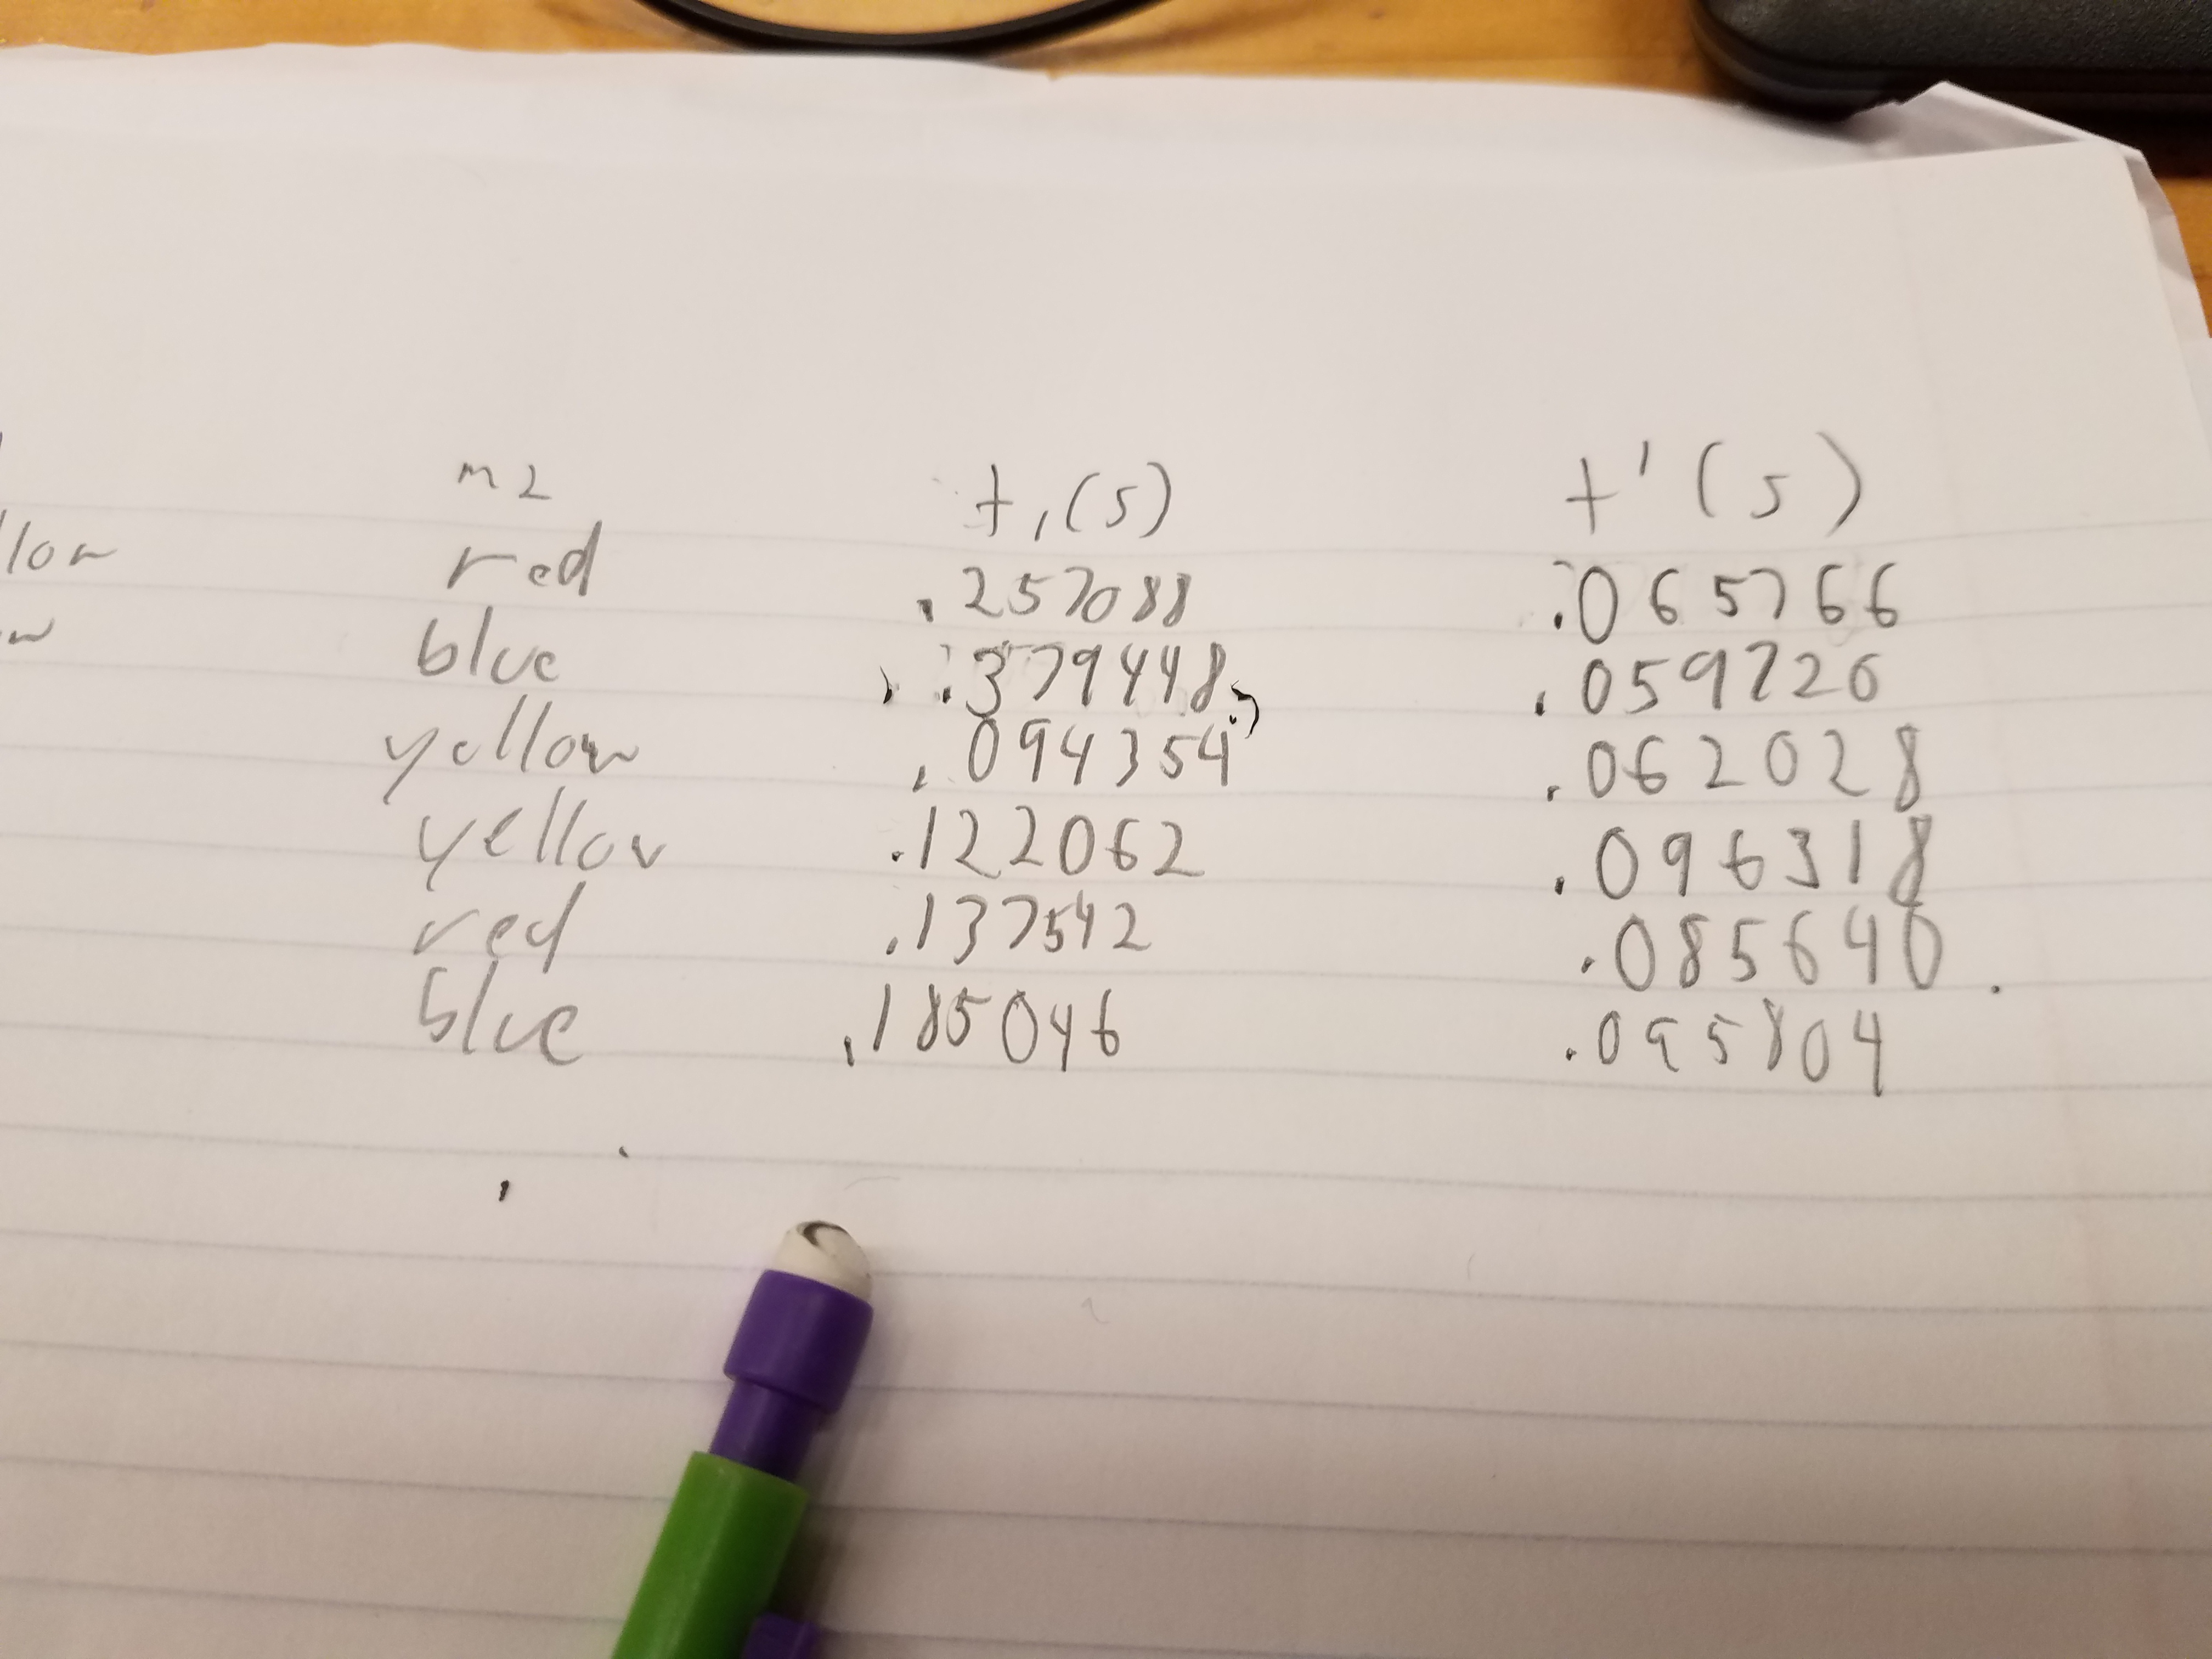 m2 t1(s) t'(s)
llow red .257088 .065766
w blue .379448 .059726
yellow .094354 .062028
yellow .122062 .096318
red .137542 .085640
blue .185046 .095804